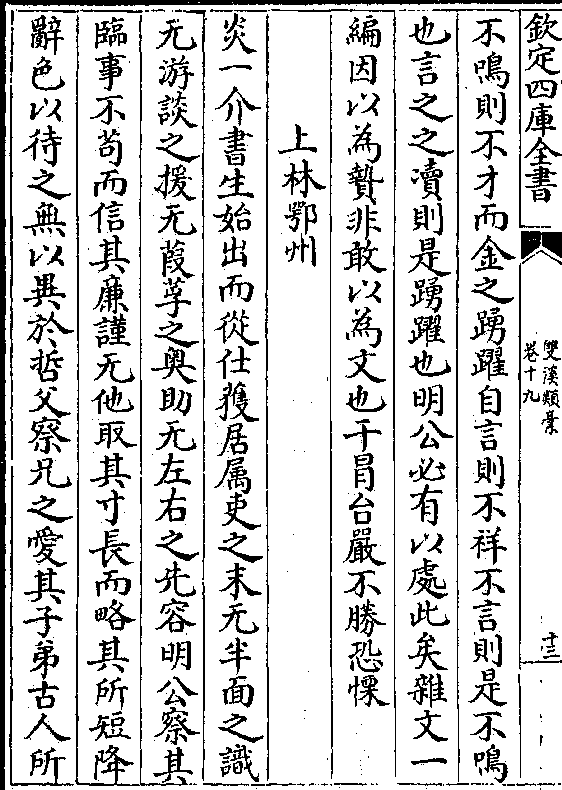 欽定四庫全書
雙溪類稾
卷十九
十三
不鳴則不才而金之踴躍自言則不祥不言則是不鳴
也言之之瀆則是踴躍也明公必有以處此矣雜文一
編因以為贄非敢以為文也干冒台嚴不勝恐慄
上林鄂州
炎一介書生始出而從仕獲居属吏之末无半面之識
无游談之援无葭莩之奥助无左右之先容明公察其
臨事不苟而信其廉謹无他取其寸長而略其所短降
辭色以待之無以異於哲父察兄之愛其子弟古人所